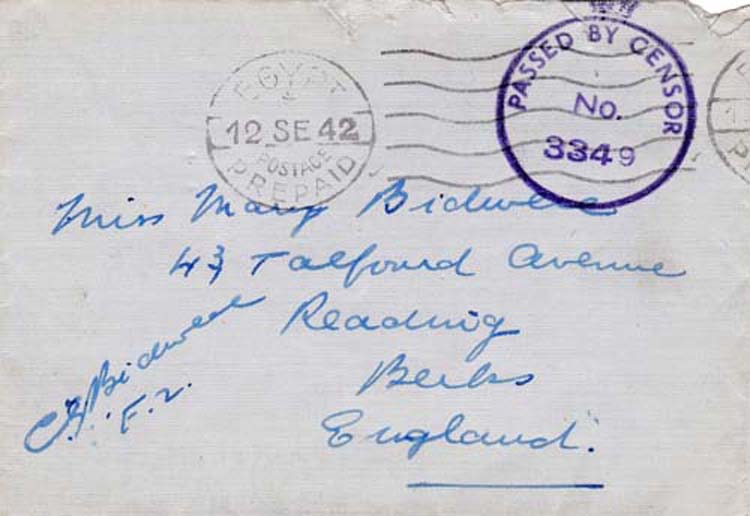 EGYPT
12 SE 42
POSTAGE
PREPAID
PASSED BY CENSOR
No.
3349
Miss Mary Bidwell
43 Talfourd Avenue
Reading
Berks
England.
Bidwell